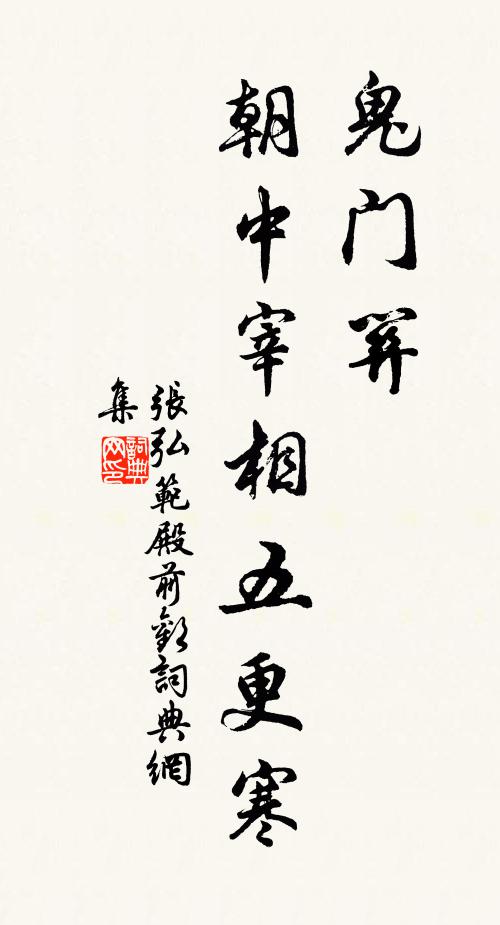 鬼門關
朝中宰相五更寒
張弘範殿前歡詞典網
集
詞典
网印